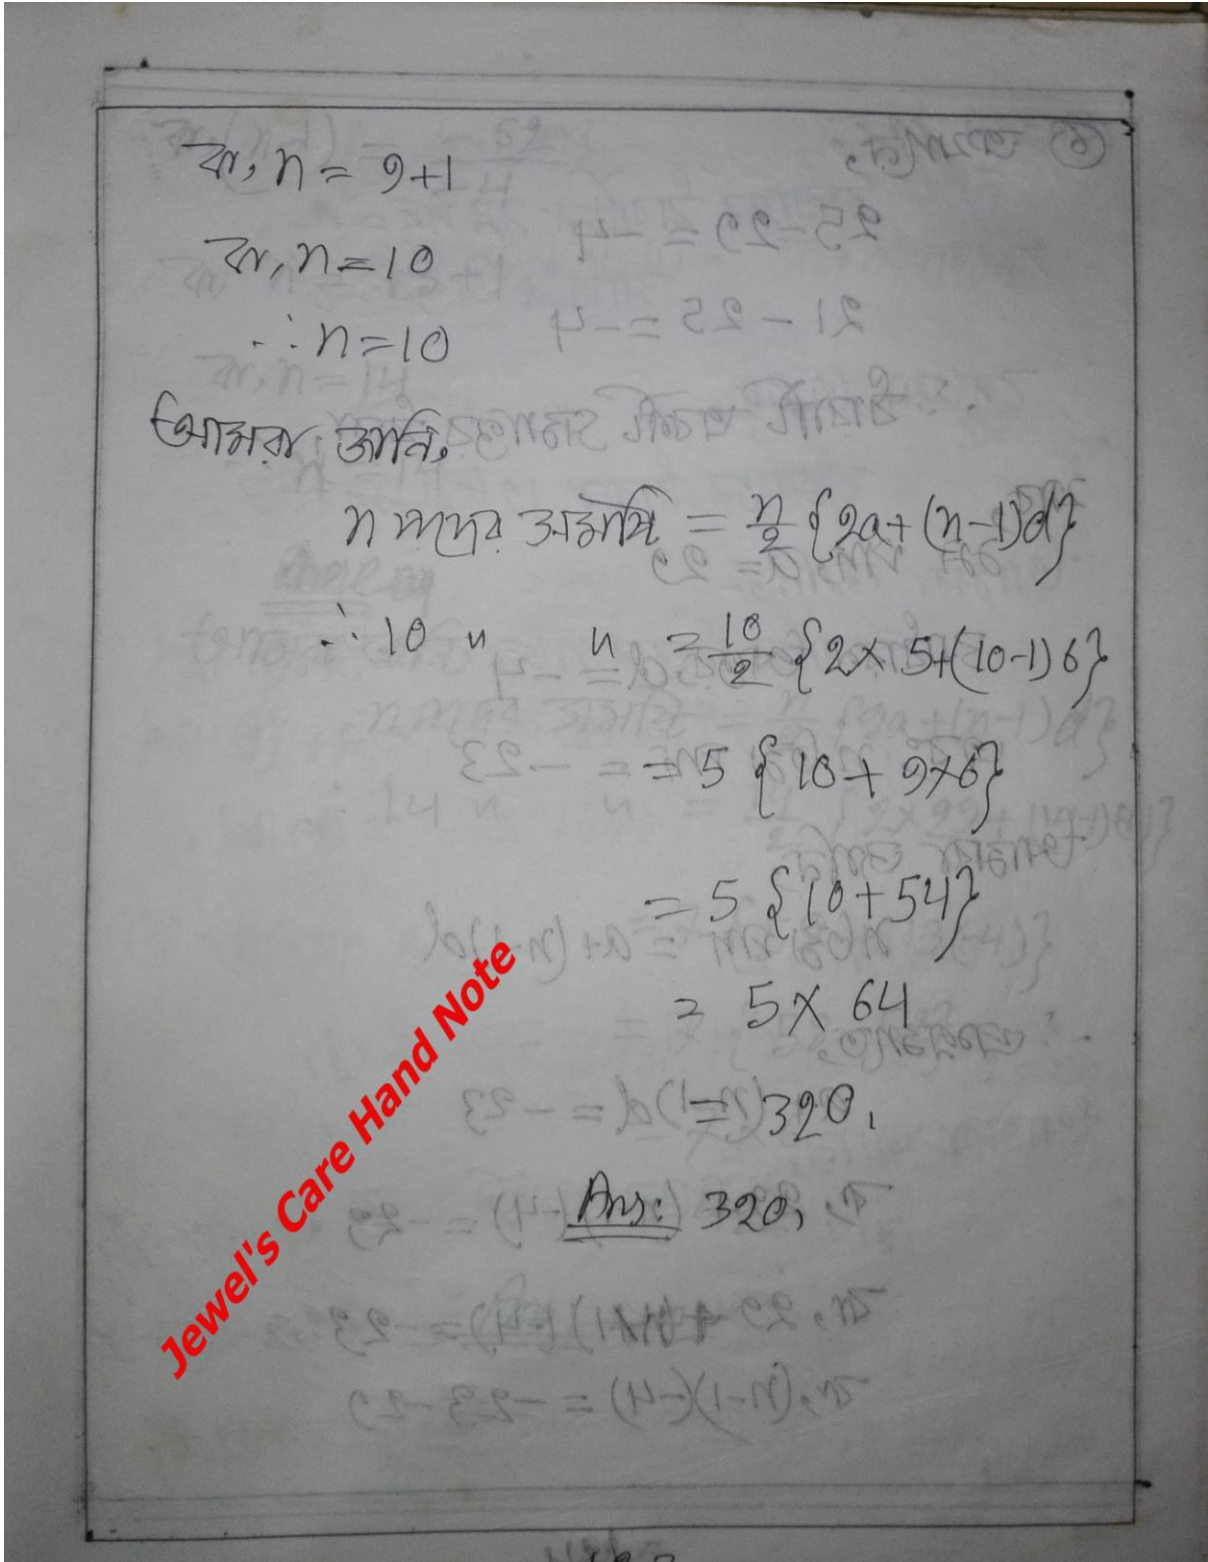 বা, n = 9+1
বা, n = 10
∴ n = 10
আমরা জানি,
n পদের সমষ্টি = n/2 {2a + (n-1)d}
∴ 10 " " = 10/2 {2 × 5+(10-1)6}
= 5 {10 + 9×6}
= 5 {10 + 54}
= 5 × 64
= 320,
Ans: 320,
Jewel's Care Hand Note